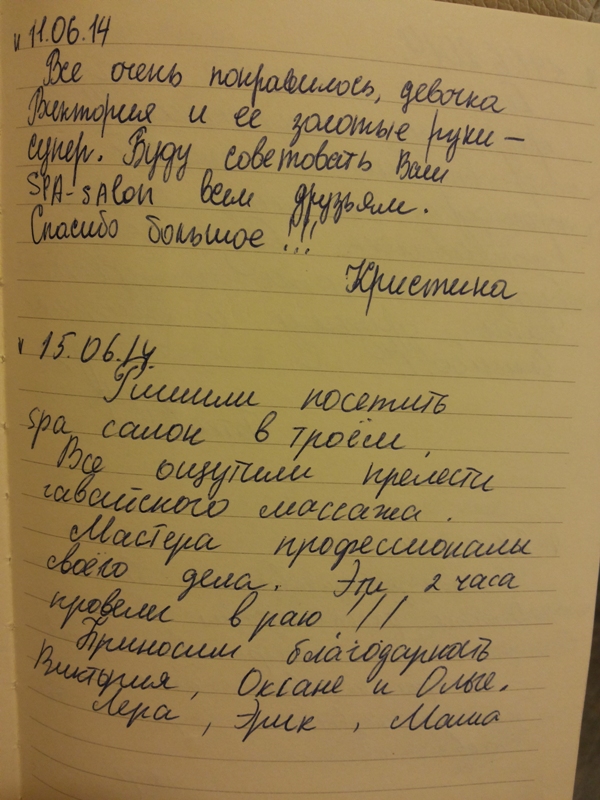 11.06.14
Все очень понравилось, девочка
Виктория и ее золотые руки –
супер. Буду советовать Ваш
SPA-SAlon всем друзьям.
Спасибо большое !!!
Кристина
15.06.14.
Решили посетить
spa салон в троём.
Все ощутили прелести
гавайского массажа.
Мастера профессионалы
своего дела. Эти 2 часа
провели в раю !!!
Приносим благодарность
Виктория, Оксане и Ользе.
Лера, Эрик, Маша